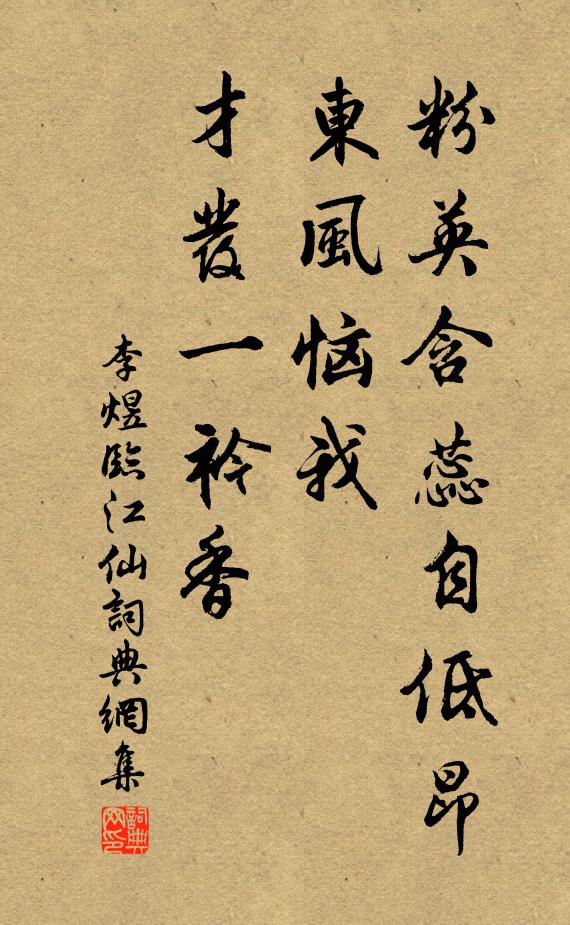 粉英含蕊自低昂
東風惱我
才發一衿香
李煜臨江仙詞典網集
詞典网印